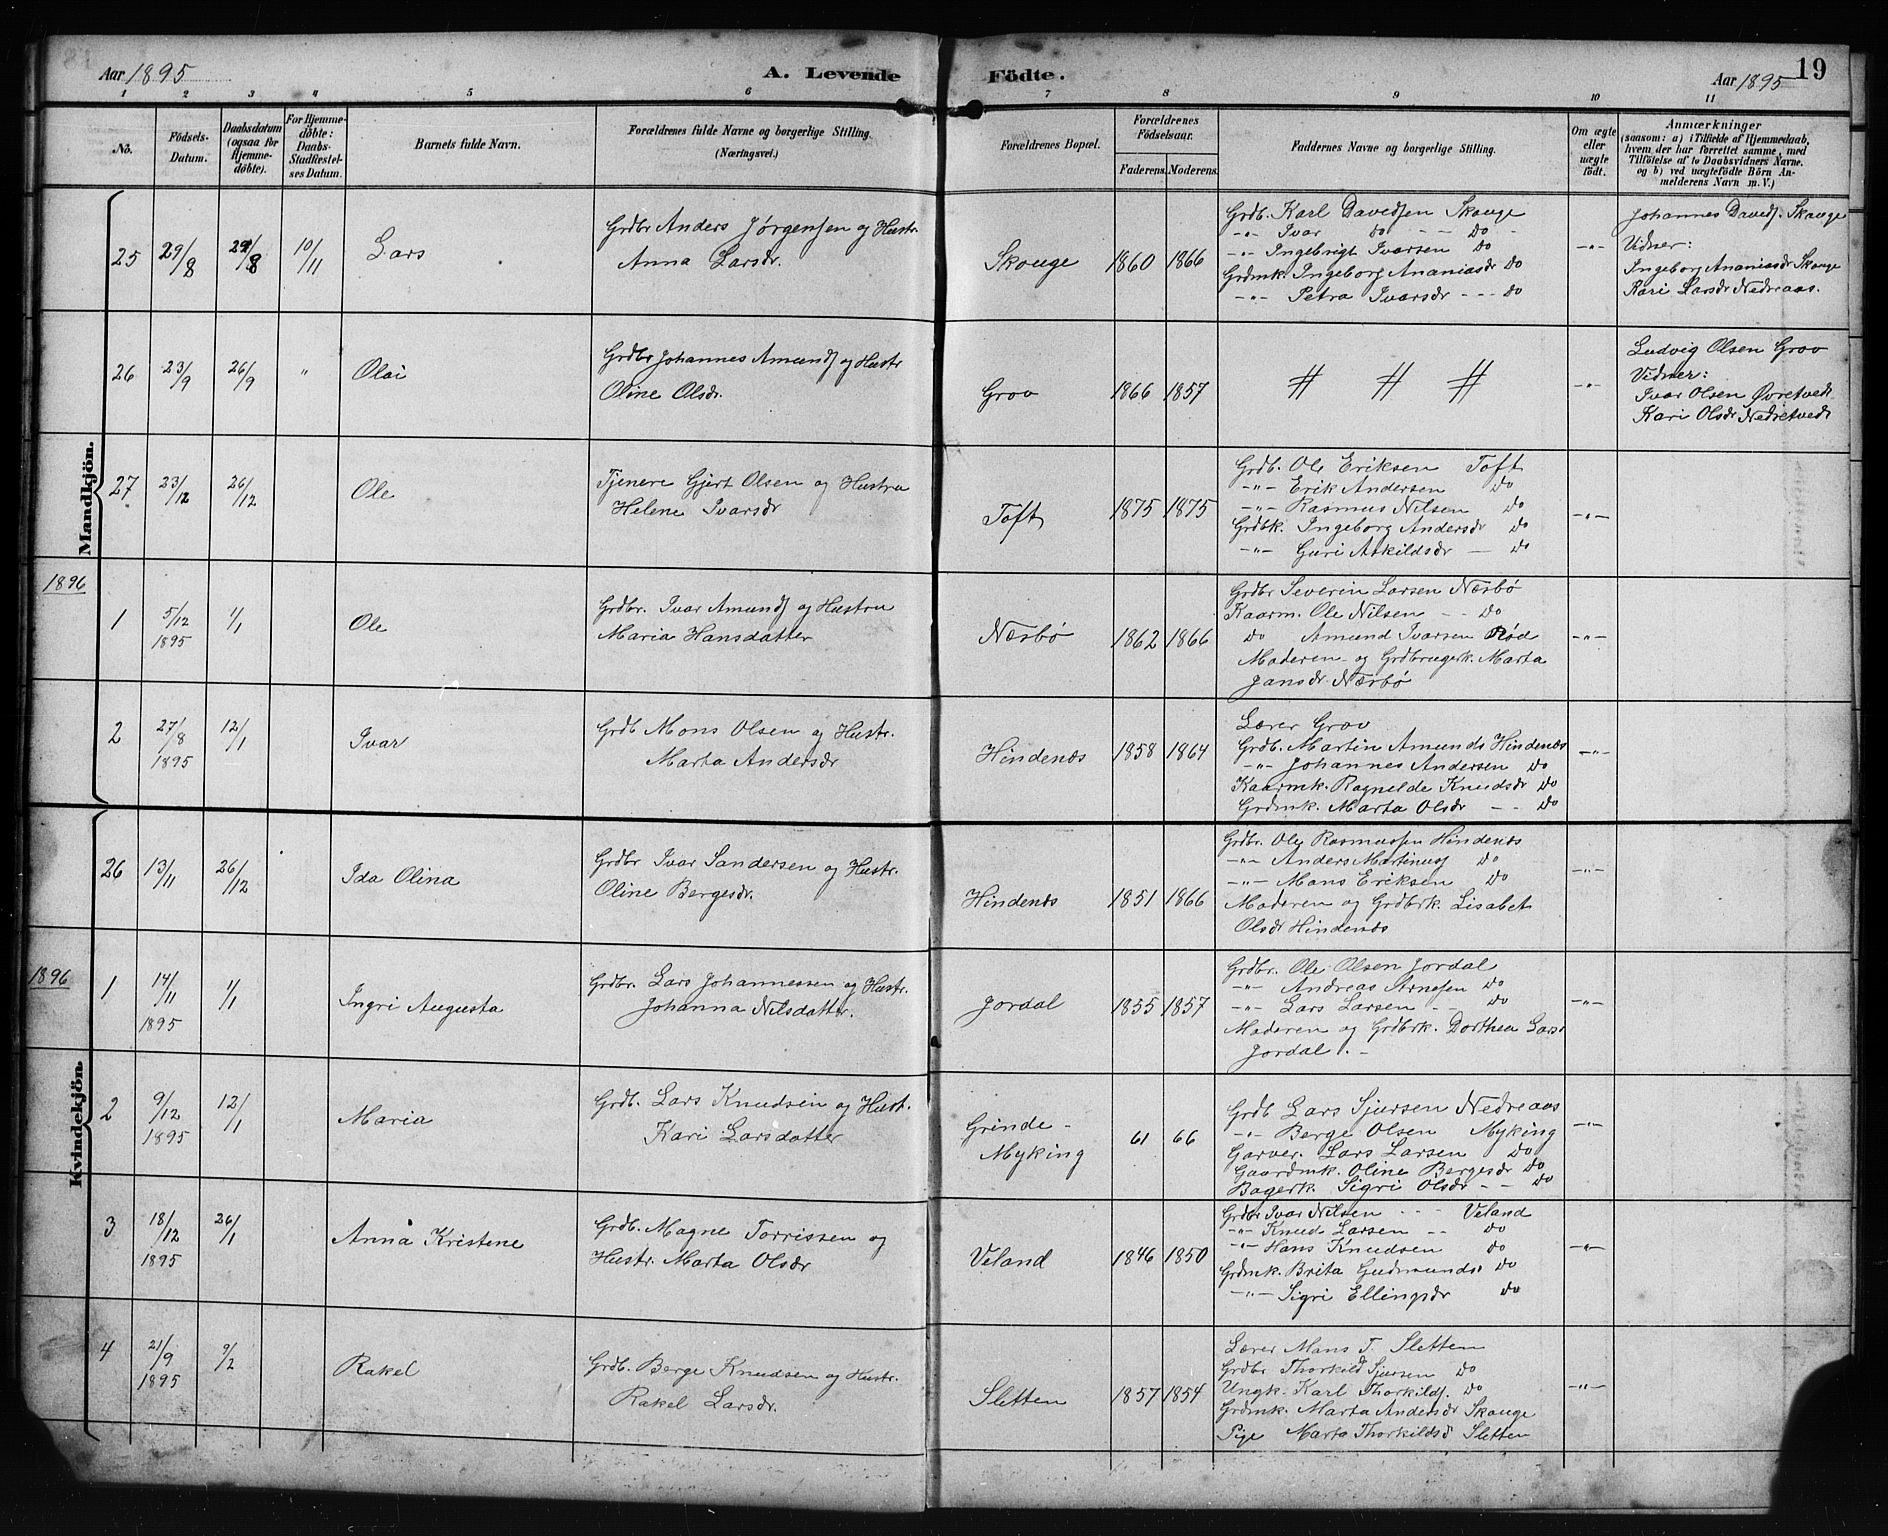 Aar 1895
A. Levende Födte.
Aar 1895
19
1 2 3 4 5 6 7 8 9 10 11
No.
Födsels-Datum.
Daabsdatum (ogsaa for Hjemmedöbte).
For Hjemmedöbte: Daabs-Stadfæstelses Datum.
Barnets fulde Navn.
Forældrenes fulde Navne og borgerlige Stilling. (Næringsvei.)
Forældrenes Bopæl.
Forældrenes Födselsaar.
Faderens. Moderens.
Faddernes Navne og borgerlige Stilling.
Om ægte eller uægte födt.
Anmærkninger (saasom: a) i Tilfælde af Hjemmedaab, hvem der har forrettet samme, med Tilföielse af to Daabsvidners Navne, og b) ved uægtefödte Börn Anmelderens Navn m. V.)
Mandkjön.
25 29/8 29/8 10/11 Lars
Grdbr Anders Jørgensen og Hustr.
Anna Larsdr.
Skouge 1860 1866
Grdb. Karl Davidsen Skouge
-"- Ivar do - - do -
-"- Ingebrigt Ivarsen do
Grdmk. Ingeborg Ananiasdr do
-"- Petra Ivarsdr - - - do
-"-
Johannes Davids. Skouge
Vidner:
Ingeborg Ananiasdr Skouge
Kari Larsdr Nedreaas.
26 23/9 26/9 " Olai
Grdbr Johannes Amunds og Hustr
Oline Olsdr.
Grov 1866 1857
# # #
-"-
Ludvig Olsen Grov
Vidner:
Ivar Olsen Øvretvedt
Kari Olsdr Nedretvedt
27 23/12 26/12 Ole
Tjenere Gjert Olsen og Hustru
Helene Ivarsdr
Toft 1875 1875
Grdb. Ole Eriksen Toft
-"- Erik Andersen do
-"- Rasmus Nilsen do
Grdbk. Ingeborg Andersdr do
-"- Guri Askildsdr - do
-"-
1896
1 5/12 1895 1/1 Ole
Grdbr. Ivar Amunds og Hustru
Maria Hansdatter
Næsbø 1862 1866
Grdbr Severin Larsen Næsbø
Kaarm. Ole Nilsen - - do
do Amund Ivarsen Rød
Moderen - og Grdbrugerk. Marta
Jansdr. Næsbø
-"-
2 27/8 1895 12/1 Ivar
Grdb. Mons Olsen og Hustr.
Marta Andersdr
Hindenæs 1858 1864
Lærer Grov
Grdb. Martin Amunds Hindenæs
-"- Johannes Andersen do
Kaarmk. Ragnelde Knudsdr do
Grdmk. Marta Olsdr - - do
-"-
Kvindekjön.
26 13/11 26/12 Ida Olina
Grdbr Ivar Sandersen og Hustr.
Oline Bergesdr.
Hindenæs 1851 1866
Grdbr. Ole Rasmussen Hindenæs
-"- Anders Martinus do
-"- Mons Eriksen do
Moderen og Grdbrk. Lisabet
Olsdr Hindenæs
-"-
1896
1 14/11 1895 1/1 Ingri Augusta
Grdbr. Lars Johannessen og Hustr.
Johanna Nilsdatter.
Jordal 1855 1857
Grdbr. Ole Olsen Jordal
-"- Andreas Arnesen do
-"- Lars Larsen - - do
Moderen og Grdbrk. Dorthea Lars
Jordal. -
-"-
2 9/12 1895 12/1 Maria
Grdb. Lars Knudsen og Hust.
Kari Larsdatter
Grinde -
Myking 61 66
Grdb Lars Sjursen Nedreaas
-"- Berge Olsen Myking
Garver. Lars Larsen do
Gaardmk. Oline Bergesdr do
Bagerk. Sigri Olsdr - - do
-"-
3 18/12 1895 26/1 Anna Kristene
Grdb. Magne Torrissen og
Hustr. Marta Olsdr
Veland 1846 1850
Grdbr Ivar Nilsen - - - Veland
-"- Knud Larsen - - do
-"- Hans Knudsen do
Grdmk. Brita Gudmunds. do
-"- Sigri Ellingsdr do
-"-
4 21/9 1895 9/2 Rakel
Grdb. Berge Knudsen og Hustr.
Rakel Larsdr.
Sletten 1857 1854
Lærer Mons T. Sletten
Grdbr Thorkild Sjursen do
Ungk. Karl Thorkilds. do
Grdmk. Marta Andersdr Skouge
Pige Marta Thorkildsd Sletten
-"-